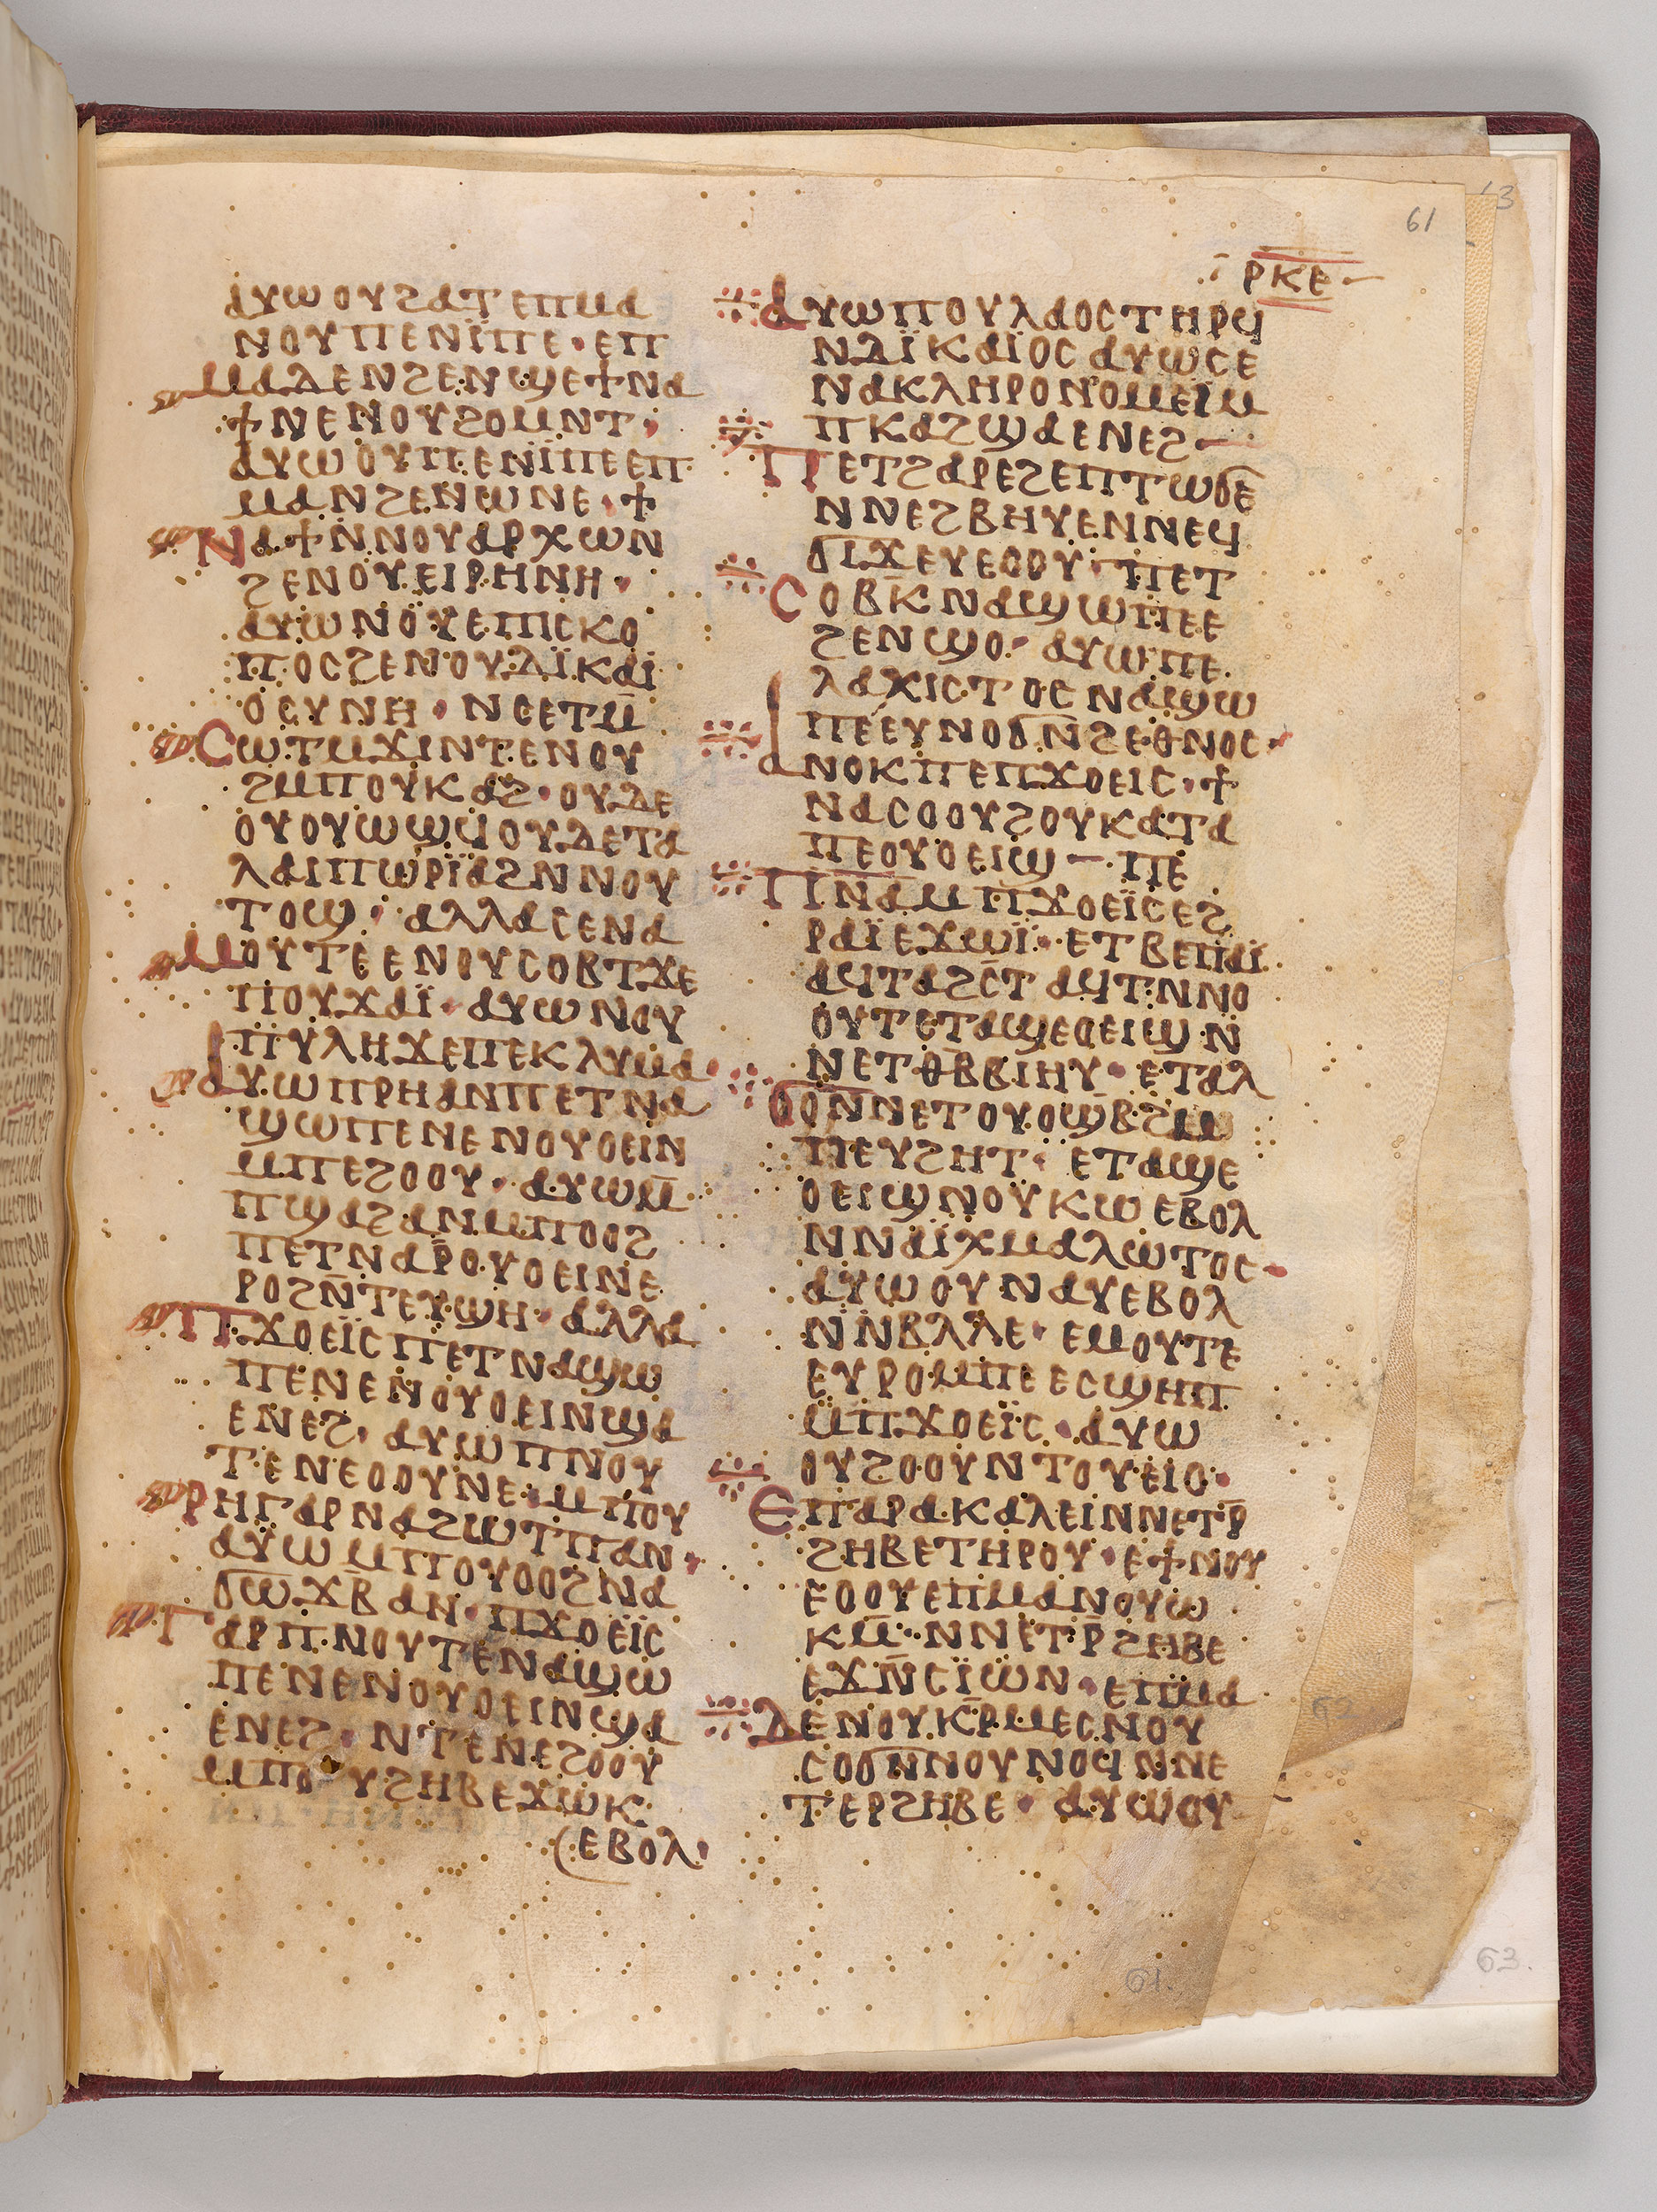 61
ⲣⲕⲉ
ⲁⲩⲱ ⲟⲩϩⲁⲧ ⲉⲡⲙⲁ
ⲛⲟⲩⲡⲉⲛⲓ̈ⲡⲉ· ⲉⲡ
ⲙⲁ ⲇⲉ ⲛϩⲉⲛϣⲉ ϯⲛⲁ
ϯ ⲛⲉ ⲛⲟⲩϩⲟⲙⲛⲧ·
ⲁⲩⲱ ⲟⲩⲡⲉⲛⲓ̈ⲡⲉ ⲉⲡ
ⲙⲁ ⲛϩⲉⲛⲱⲛⲉ· ϯ
ⲛⲁϯ ⲛⲛⲟⲩⲁⲣⲭⲱⲛ
ϩⲉⲛⲟⲩⲉⲓⲣⲏⲛⲏ·
ⲁⲩⲱ ⲛⲟⲩⲉⲡⲓⲥⲕⲟ
ⲡⲟⲥ ϩⲉⲛⲟⲩⲇⲓ̈ⲕⲁⲓ̈
ⲟⲥⲩⲛⲏ· ⲛⲥⲉⲧⲙ̅
ⲥⲱⲧⲙ ϫⲓⲛ ⲧⲉⲛⲟⲩ
ϩⲙ ⲡⲟⲩⲕⲁϩ· ⲟⲩⲇⲉ
ⲟⲩⲟⲩⲱϣϥ ⲟⲩⲇⲉ ⲧⲁ
ⲗⲁⲓⲡⲱⲣⲓ̈ⲁ ϩⲛ ⲛⲟⲩ
ⲧⲟϣ· ⲁⲗⲗⲁ ⲥⲉⲛⲁ
ⲙⲟⲩⲧⲉ ⲉⲛⲟⲩⲥⲟⲃⲧ ϫⲉ
ⲡⲟⲩϫⲁⲓ̈· ⲁⲩⲱ ⲛⲟⲩ
ⲡⲩⲗⲏ ϫⲉ ⲡⲉⲕⲗⲩⲙⲁ·
ⲁⲩⲱ ⲡⲣⲏ ⲁⲛ ⲡⲉⲧⲛⲁ
ϣⲱⲡⲉ ⲛⲉ ⲛⲟⲩⲟⲉⲓⲛ
ⲙⲡⲉϩⲟⲟⲩ· ⲁⲩⲱ ⲙ̅
ⲡϣⲁϩ ⲁⲛ ⲙⲡⲟⲟϩ
ⲡⲉⲧⲛⲁⲣ̅ⲟⲩⲟⲉⲓⲛ ⲉ
ⲣⲟ ϩⲛ̅ ⲧⲉⲩϣⲏ· ⲁⲗⲗⲁ
ⲡϫⲟⲉⲓ̈ⲥ ⲡⲉⲧⲛⲁϣⲱ
ⲡⲉ ⲛⲉ ⲛⲟⲩⲟⲉⲓⲛ ϣⲁ
ⲉⲛⲉϩ· ⲁⲩⲱ ⲡⲛⲟⲩ
ⲧⲉ ⲛⲉⲟⲟⲩ ⲛⲉ· ⲙⲡⲟⲩ
ⲣⲏ ⲅⲁⲣ ⲛⲁϩⲱⲧⲡ ⲁⲛ·
ⲁⲩⲱ ⲙⲡⲟⲩⲟⲟϩ ⲛⲁ
ϭⲱϫⲃ̅ ⲁⲛ· ⲡϫⲟⲉⲓ̈ⲥ
ⲅⲁⲣ ⲡⲛⲟⲩⲧⲉ ⲛⲁϣⲱ
ⲡⲉ ⲛⲉ ⲛⲟⲩⲟⲉⲓⲛ ϣⲁ
ⲉⲛⲉϩ· ⲛⲧⲉ ⲛⲉϩⲟⲟⲩ
ⲙⲡⲟⲩϩⲏⲃⲉ ϫⲱⲕ
(ⲉⲃⲟⲗ·
ⲁⲩⲱ ⲡⲟⲩⲗⲁⲟⲥ ⲧⲏⲣϥ
ⲛⲇⲓ̈ⲕⲁⲓ̈ⲟⲥ ⲁⲩⲱ ⲥⲉ
ⲛⲁⲕⲗⲏⲣⲟⲛⲟⲙⲉⲓ ⲙ
ⲡⲕⲁϩ ϣⲁ ⲉⲛⲉϩ—
ⲡⲉⲧϩⲁⲣⲉϩ ⲉⲡⲧⲱϭⲉ
ⲛⲛⲉϩⲃⲏⲩⲉ ⲛⲛⲉϥ
ϭⲓϫ ⲉⲩⲉⲟⲟⲩ· ⲡⲉⲧ
ⲥⲟⲃⲕ̅ ⲛⲁϣⲱⲡⲉ ⲉ
ϩⲉⲛϣⲟ· ⲁⲩⲱ ⲡⲉ
ⲗⲁⲭⲓⲥⲧⲟⲥ ⲛⲁϣⲱ
ⲡⲉ ⲉⲩⲛⲟϭ ⲛ̅ϩⲉⲑⲛⲟⲥ·
ⲁⲛⲟⲕ ⲡⲉ ⲡϫⲟⲉⲓⲥ· ϯ
ⲛⲁⲥⲟⲟⲩϩⲟⲩ ⲕⲁⲧⲁ
ⲡⲉⲟⲩⲟⲉⲓϣ—· ⲡⲉ
ⲡⲛⲁ ⲙⲡϫⲟⲉⲓ̈ⲥ ⲉϩ
ⲣⲁⲓ̈ ⲉϫⲱⲓ̈· ⲉⲧⲃⲉ ⲡⲁⲓ̈
ⲁϥⲧⲁϩⲥ̅ⲧ ⲁϥⲧⲛⲛⲟ
ⲟⲩⲧ ⲉⲧⲁϣⲉⲟⲉⲓϣ ⲛ̈
ⲛⲉⲧⲑⲃ̅ⲃⲓⲏⲩ· ⲉⲧⲁⲗ
ϭⲟ ⲛ̅ⲛⲉⲧⲟⲩⲟϣ̅ⲃ ϩⲙ
ⲡⲉⲩϩⲏⲧ· ⲉⲧⲁϣⲉ
ⲟⲉⲓϣ ⲛⲟⲩⲕⲱ ⲉⲃⲟⲗ
ⲛⲛⲁⲓ̈ⲭⲙⲁⲗⲱⲧⲟⲥ·
ⲁⲩⲱ ⲟⲩⲛⲁⲩ ⲉⲃⲟⲗ
ⲛⲛⲃⲗⲗⲉ· ⲉⲙⲟⲩⲧⲉ
ⲉⲩⲣⲟⲙⲡⲉ ⲉⲥϣⲏⲡ
ⲙ̈ⲡϫⲟⲉⲓ̈ⲥ· ⲁⲩⲱ
ⲟⲩϩⲟⲟⲩ ⲛⲧⲟⲩⲉⲓⲟ·
ⲉⲡⲁⲣⲁⲕⲁⲗⲉⲓ ⲛⲛⲉⲧⲣ̅
ϩⲏⲃⲉ ⲧⲏⲣⲟⲩ· ⲉϯ ⲛⲟⲩ
ⲉⲟⲟⲩ ⲉⲡⲙⲁ ⲛⲟⲩⲱ
ⲕⲙ̅· ⲛⲛⲉⲧⲣ̅ϩⲏⲃⲉ
ⲉϫⲛ̅ ⲥⲓ̈ⲱⲛ· ⲉⲡⲙⲁ
ⲇⲉ ⲛⲟⲩⲕⲣ̅ⲙⲉⲥ ⲛⲟⲩ
ⲥⲟϭⲛ ⲛⲟⲩⲛⲟϥ ⲛⲛⲉ
ⲧⲉⲣϩⲏⲃⲉ· ⲁⲩⲱ ⲟⲩ
61.
62
63
63.